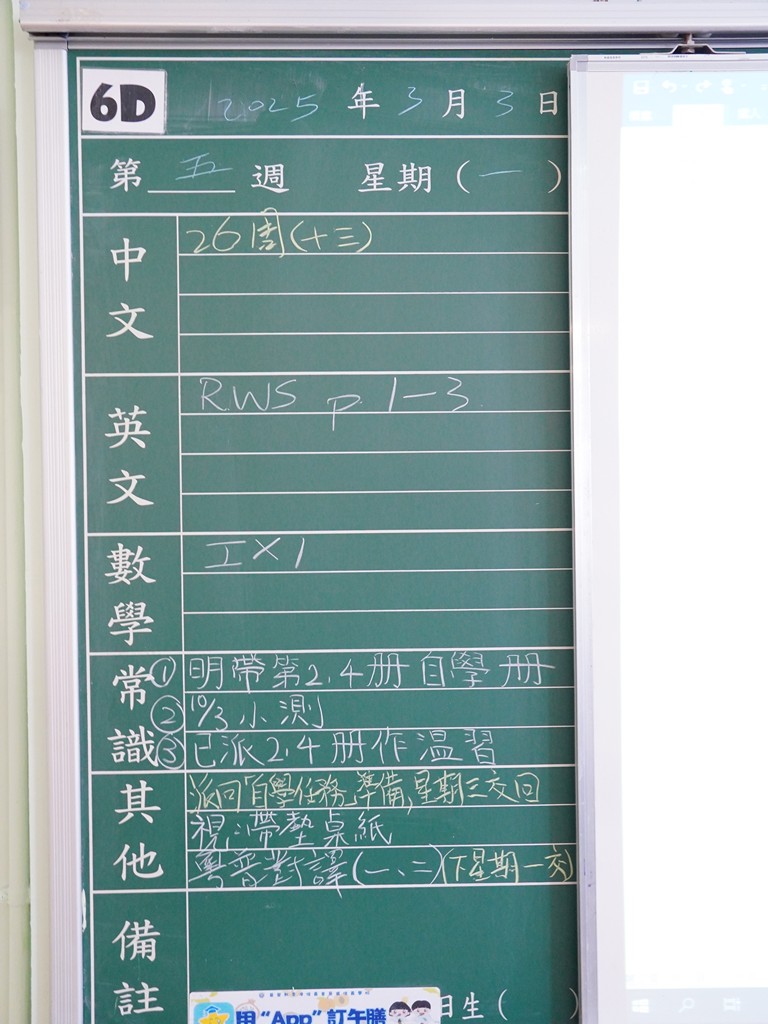 6D 2025 年 3 月 3 日
第 五 週 星期 ( 一 )
中文 26周(十三)
英文 RWS p.1-3
數學 工×1
常識 ① 明帶第2,4册自學册
② 10/3 小測
③ 已派2,4册作温習
其他 派回「自學任務」準備,星期三交回
視:帶墊桌紙
粵普對譯(一、二)(下星期一交)
備註
日生 ( )
用“App”訂午膳